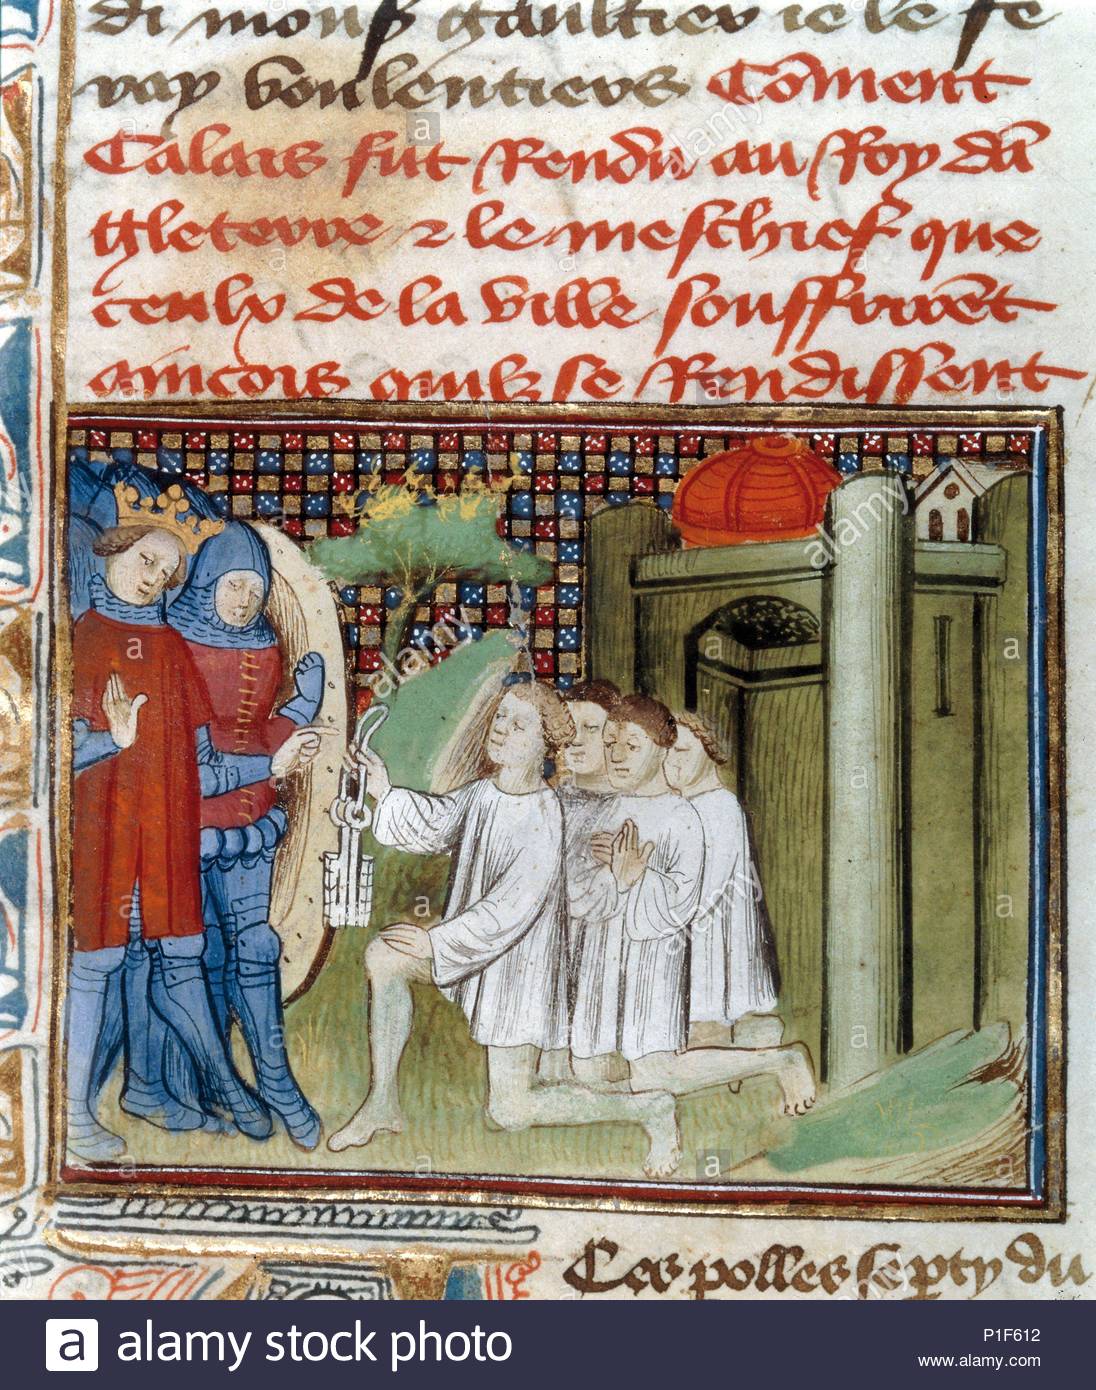 di mons gaultier ie le fe
ray voulentiers Coment
Calais fut Rendu au Roy dā
gleterre & le meschief que
ceulx de la ville souffrirēt
aincois quilz se Rendissent
Ces polles se pty du
alamy stock photo
P1F612
www.alamy.com